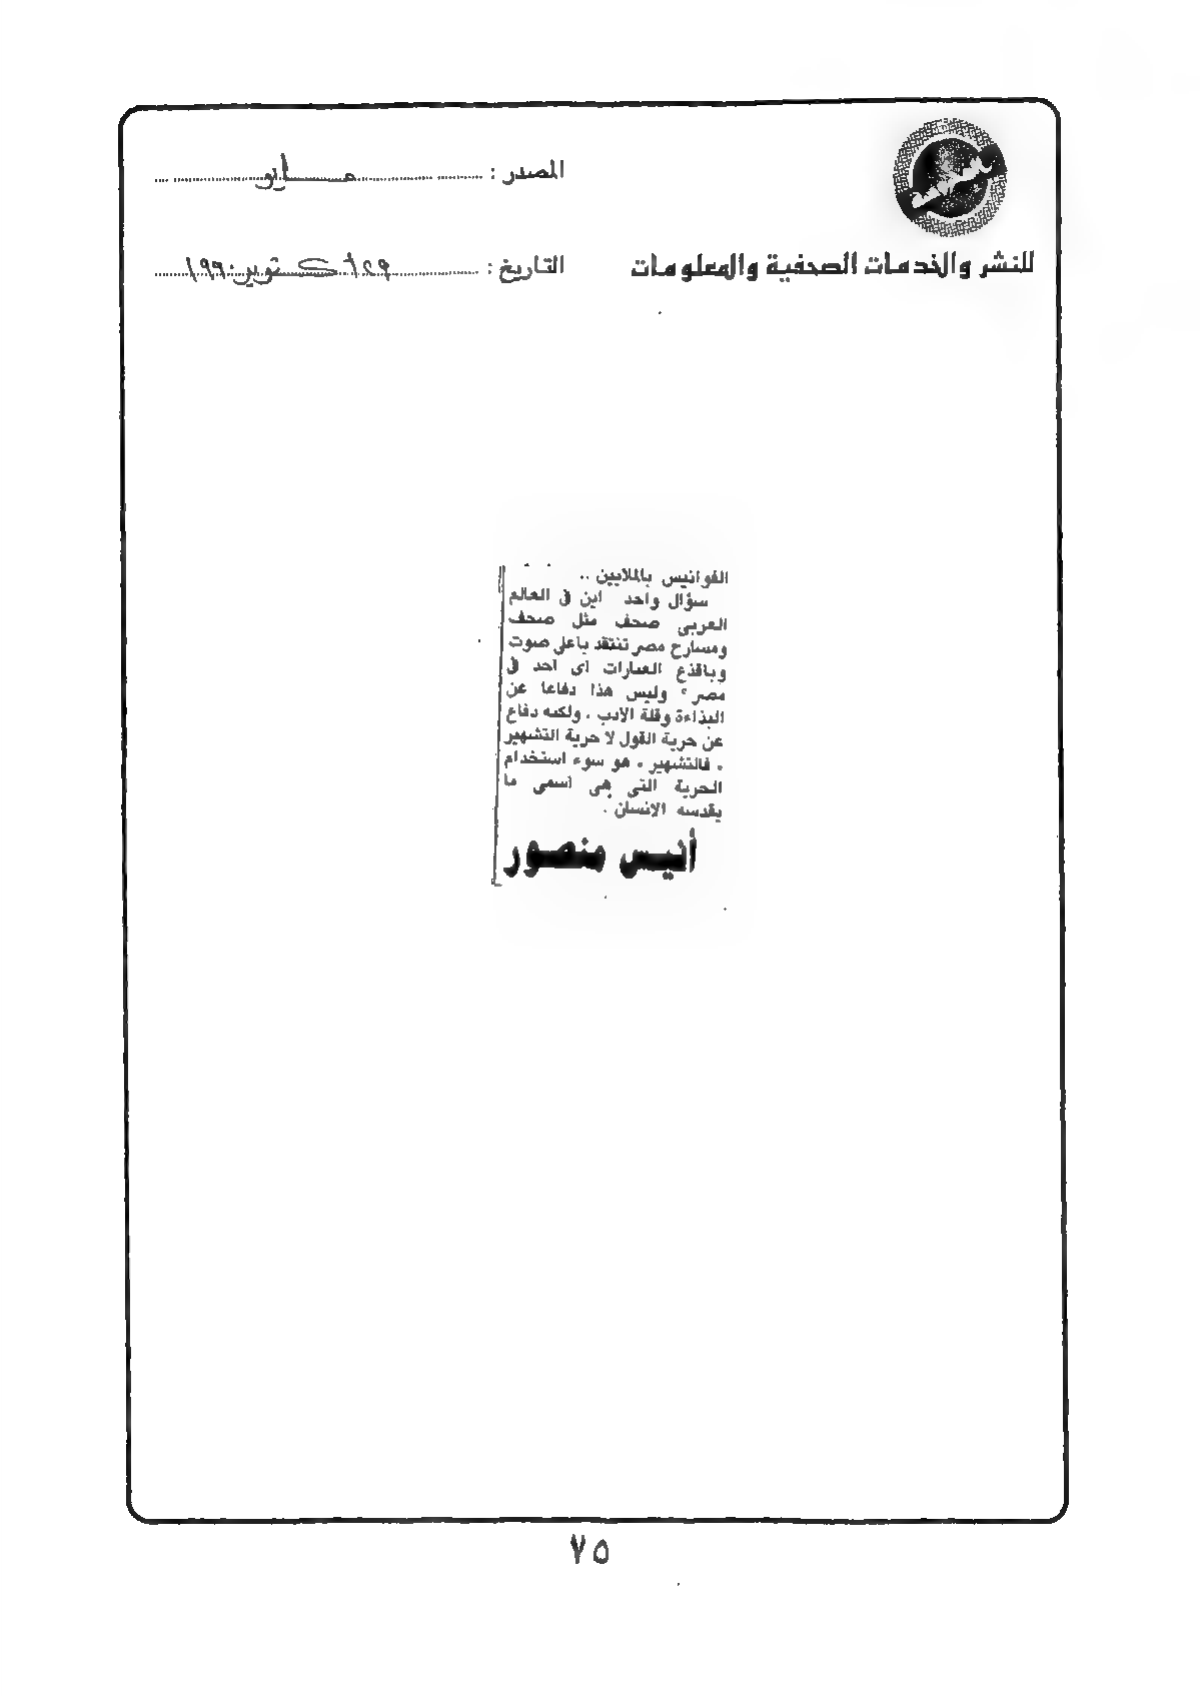 المصدر : مايو
للنشر والخدمات الصحفية والمعلومات
التاريخ : ٢٩ أكتوبر ١٩٩٠
الفوانيس بالملايين ..
سؤال واحد اين فى العالم
العربى صحف مثل صحف
ومسارح مصر تنتقد باعلى صوت
وباقذع العبارات اى احد فى
مصر ؟ وليس هذا دفاعا عن
البذاءة وقلة الادب . ولكنه دفاع
عن حرية القول لا حرية التشهير
. فالتشهير . هو سوء استخدام
الحرية التى هى اسمى ما
يقدسه الإنسان .
أنيس منصور
٧٥